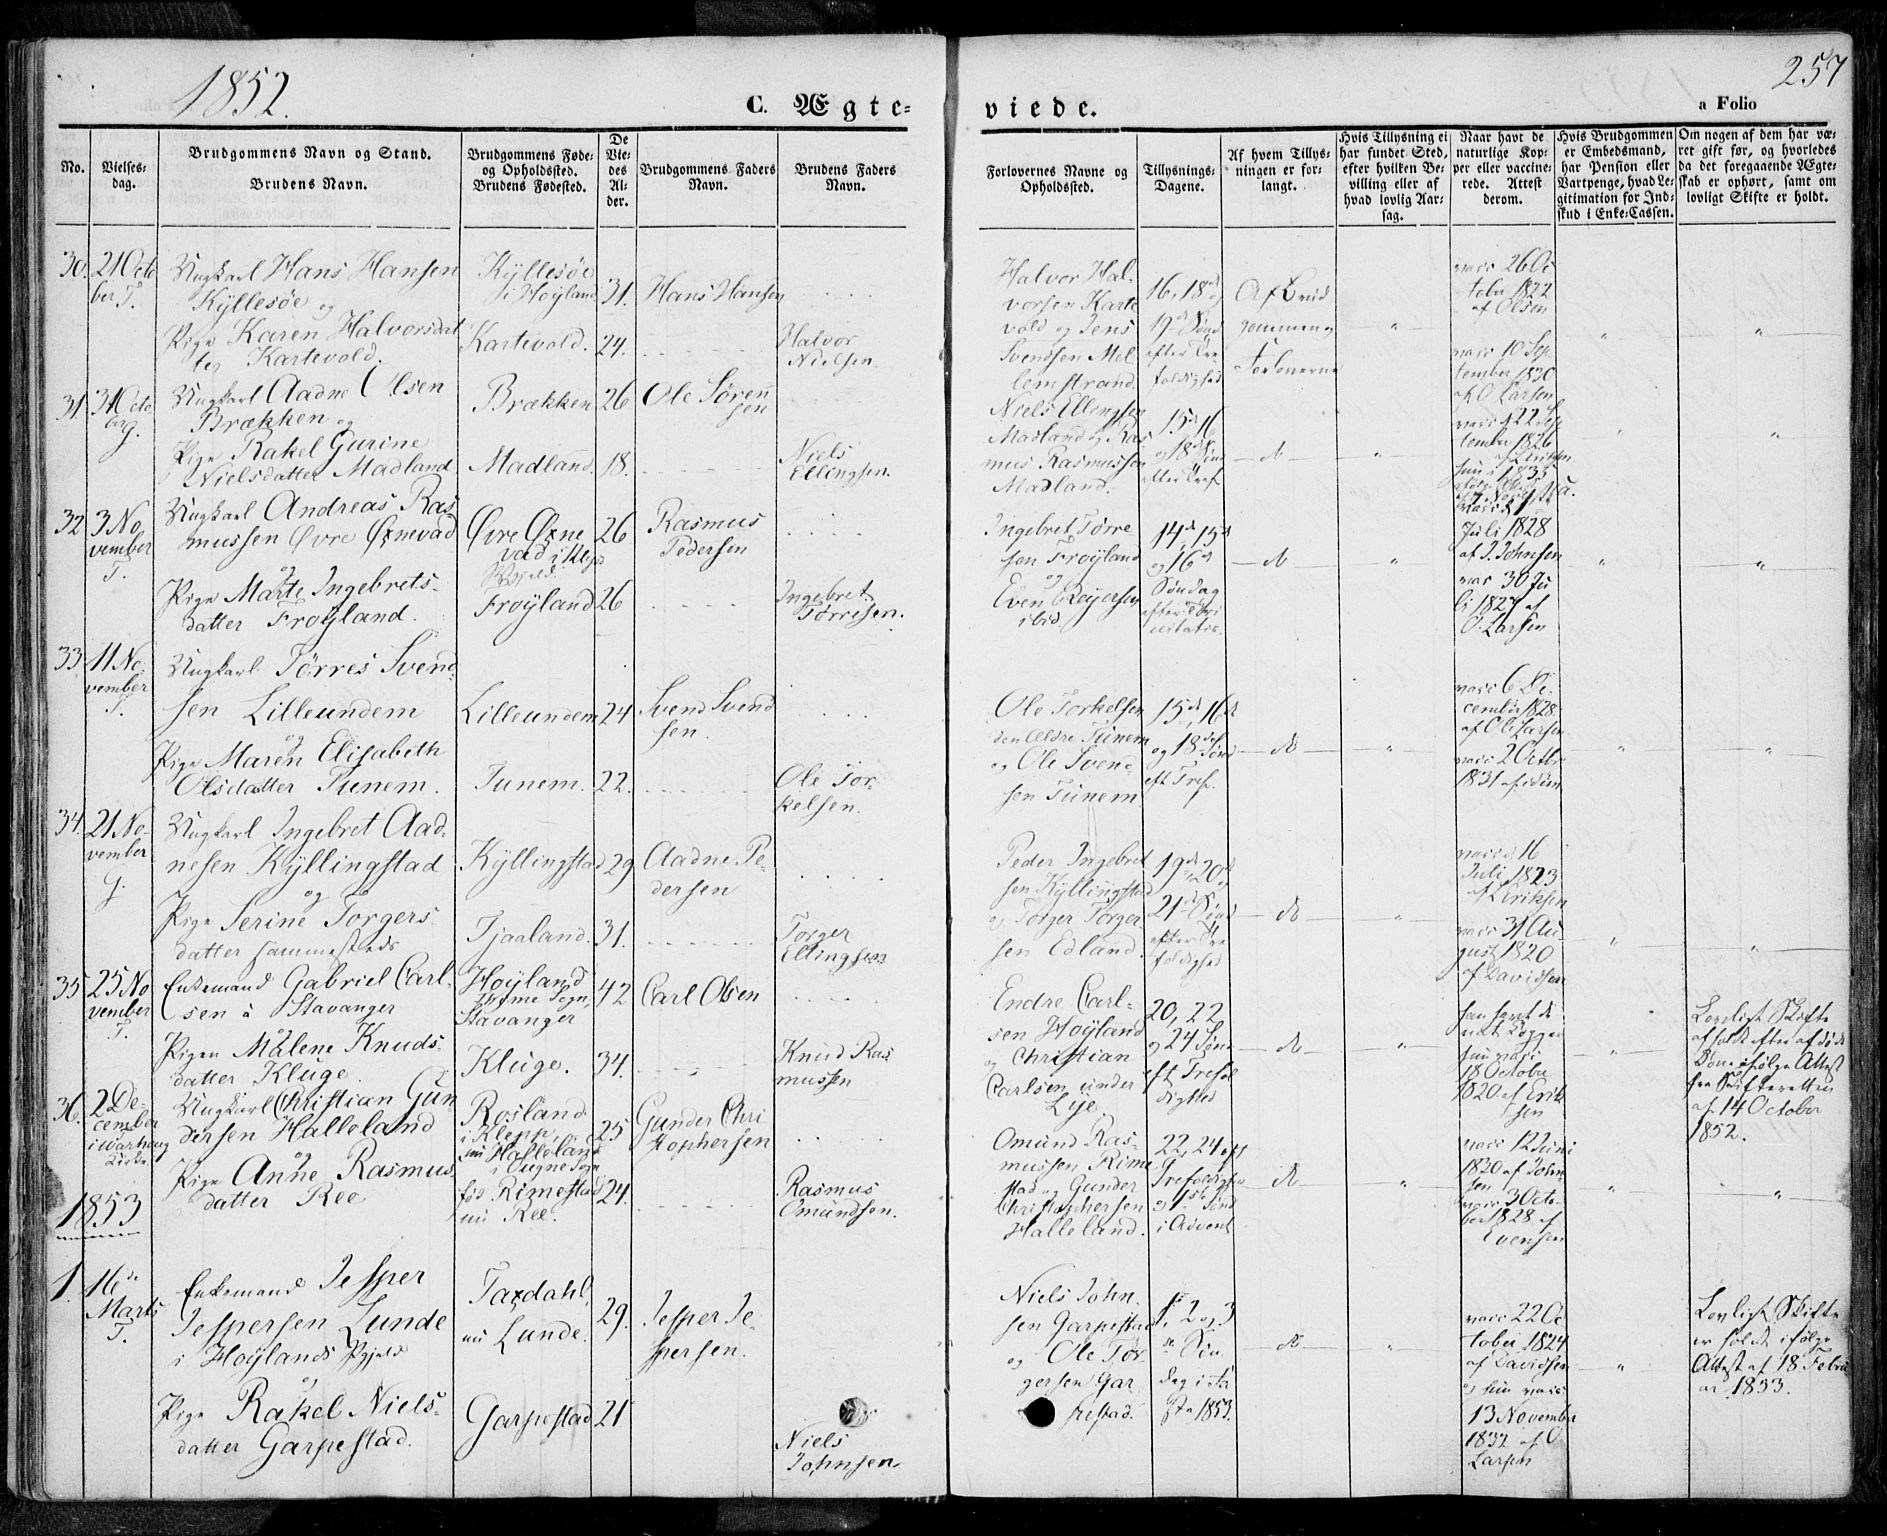 1852.
257
C. Ægte=
viede.
a Folio
No.
Vielses=
dag.
Brudgommens Navn og Stand.
Brudens Navn.
Brudgommens Føde=
og Opholdssted.
Brudens Fødested.
De
Vie=
des
Al=
der.
Brudgommens Faders
Navn.
Brudens Faders
Navn.
Forlovernes Navne og
Opholdssted.
Tillysnings=
Dagene.
Af hvem Tillys=
ningen er for=
langt.
Hvis Tillysning ei
har fundet Sted,
efter hvilken Be=
villing eller af
hvad lovlig Aar=
sag.
Naar havt de
naturlige Kop=
per eller vaccine=
rede. Attest
derom.
Hvis Brudgommen
er Embedsmand,
har Pension eller
Vartpenge, hvad Le=
gitimation for Ind=
skud i Enke=Cassen.
Om nogen af dem har væ=
ret gift før, og hvorledes
da det foregaaende Ægte=
skab er ophørt, samt om
lovligt Skifte er holdt.
30.
21 Octo
ber T.
Ungkarl Hans Hansen
Kyllesøe og
Pige Karen Halvorsdat
ter Kartevold.
Kyllesøe
i Høyland
Kartevold.
31.
24.
Hans Hansen
Halvor
Nielsen.
Halvor Hal-
vorsen Karte
vold og Jens
Svendsen Mel
lemstrand.
16, 18de og
19de Sønd
efter Tre
foldighed
Af Brud
gommen og
Forloverne
vacc 26 Oc
tober 1822
af Olsen
vacc 10 Sep
tember 1830
af O Larsen
31.
31 Octo
ber
G.
Ungkarl Aadne Olsen
Brækken og
Pige Rakel Gurine
Nielsdatter Madland
Brækken
Madland.
26
18.
Ole Søren
sen
Niels
Ellingsen.
Niels Ellingsen
Madland og Ras
mus Rasmussen
Madland.
15de 16
og 18de Sønd
efter Tref
do
vacc 22 Sep
tember 1826
af Eriksen
hun i 1835
32
3 No
vember
T.
Ungkarl Andreas Ras
mussen Øvre Øxnevad
og
Pige Marte Ingebrets-
datter Frøyland.
Øvre Øxne
vad i Klep
Pgjeld.
Frøyland
26
26
Rasmus
Pedersen
Ingebret
Tørresen.
Ingebret Tørre
sen Frøyland
og
Even Reyersen
ibid.
14de, 15de
og 16de
Søndag
efter Tri
nitatis.
do
Juli 1828
af J. Johnsen
vacc 30 Ju
li 1827 af
O. Larsen
33.
11 No-
vember
T.
Ungkarl Tørres Svend-
sen Lilleundem
og
Pige Maren Elisabeth
Olsdatter Tunem.
Lilleundem
Tunem.
24
22.
Svend Svend
sen.
Ole Tor-
kelsen.
Ole Torkelsen
den Ældre Tunem
og Ole Sven-
sen Tunem
15de, 16de
og 18de Sønd
eft Tref.
do
vacc 6 De-
cember 1828
af O Larsen
vacc 2 Octbr
1831 af idem
34.
21 No-
vember
G.
Ungkarl Ingebret Aad-
nesen Kyllingstad
og
Pige Serine Torgers
datter sammesteds
Kyllingstad
Tjaaland.
29
31.
Aadne Pe-
dersen
Torger
Ellingsen
Peder Ingebret
sen Kyllingstad
og Torger Torger
sen Edland.
19de, 20de
21de Sønd
efter Tre
foldighed
do
vacc 16
Juli 1823
af Eriksen
vacc 31 Au-
gust 1820
af Davidsen
35.
25 No
vember
T.
Enkemand Gabriel Carl-
sen à Stavanger
og
Pigen Malene Knuds-
datter Kluge.
Høyland
Thime Sogn,
Stavanger
Kluge.
42
34.
Carl Olsen
Knud Ras
mussen
Endre Carl-
sen Høyland
og Christian
Carlsen under
Lye.
20, 22
og 24 Sønd
eft Trefol
dighed
do
han havt de
nat. Kopper
hun vacc
18 October
1820 af Erik
sen
Lovligt Skifte
afholdt efter afdøde
Kone ifølge Attest
fra Skifteretten
af 14 October
1852.
36.
2 De-
cember
i Warhaug
Kirke
Ungkarl Christian Gun
dersen Halleland
og
Pige Anne Rasmus
datter Ree
Rosland
i Klepp,
nu Halleland
i Ougne Sogn
fød Rimestad
nu Ree.
25
24.
Gunder Chri
stophersen
Rasmus
Omundsen.
Omund Ras-
mussen Rime
stad og Gunder
Christophersen
Halleland.
22, 24 eft
Trefoldighed
og 1ste Sønd
i Advent
do
vacc 12 Juni
1820 af John
sen
vacc 3 Octo-
ber 1828 af
Evensen
1853
1.
16de
Marts
T.
Enkemand Jesper
Jespersen Lunde
i Høylands Pgjeld
og
Pige Rakel Niels-
datter Garpestad.
Taxdahl,
nu Lunde.
Garpestad
29.
21
Jesper Je-
spersen.
Niels
Johnsen.
Niels John-
sen Garpestad
og Ole Tor-
gersen Gar
pestad.
1ste, 2 og 3
de Søn
dag i Fa
sta 1853.
do
vacc 22 Oc
tober 1824
af Davidsen
og hun vacc
13 November
1832 af O
Larsen
Lovligt Skifte
er holdt ifølge
Attest af 18 Febru
ar 1853.